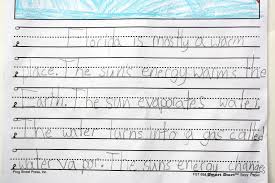 Florida is mostly a warm
place. The sun's energy warms the
Earth. The sun evaporates water.
The water turns into a gas called
water vapor. The sun's energy changes
Frog Street Press, Inc.